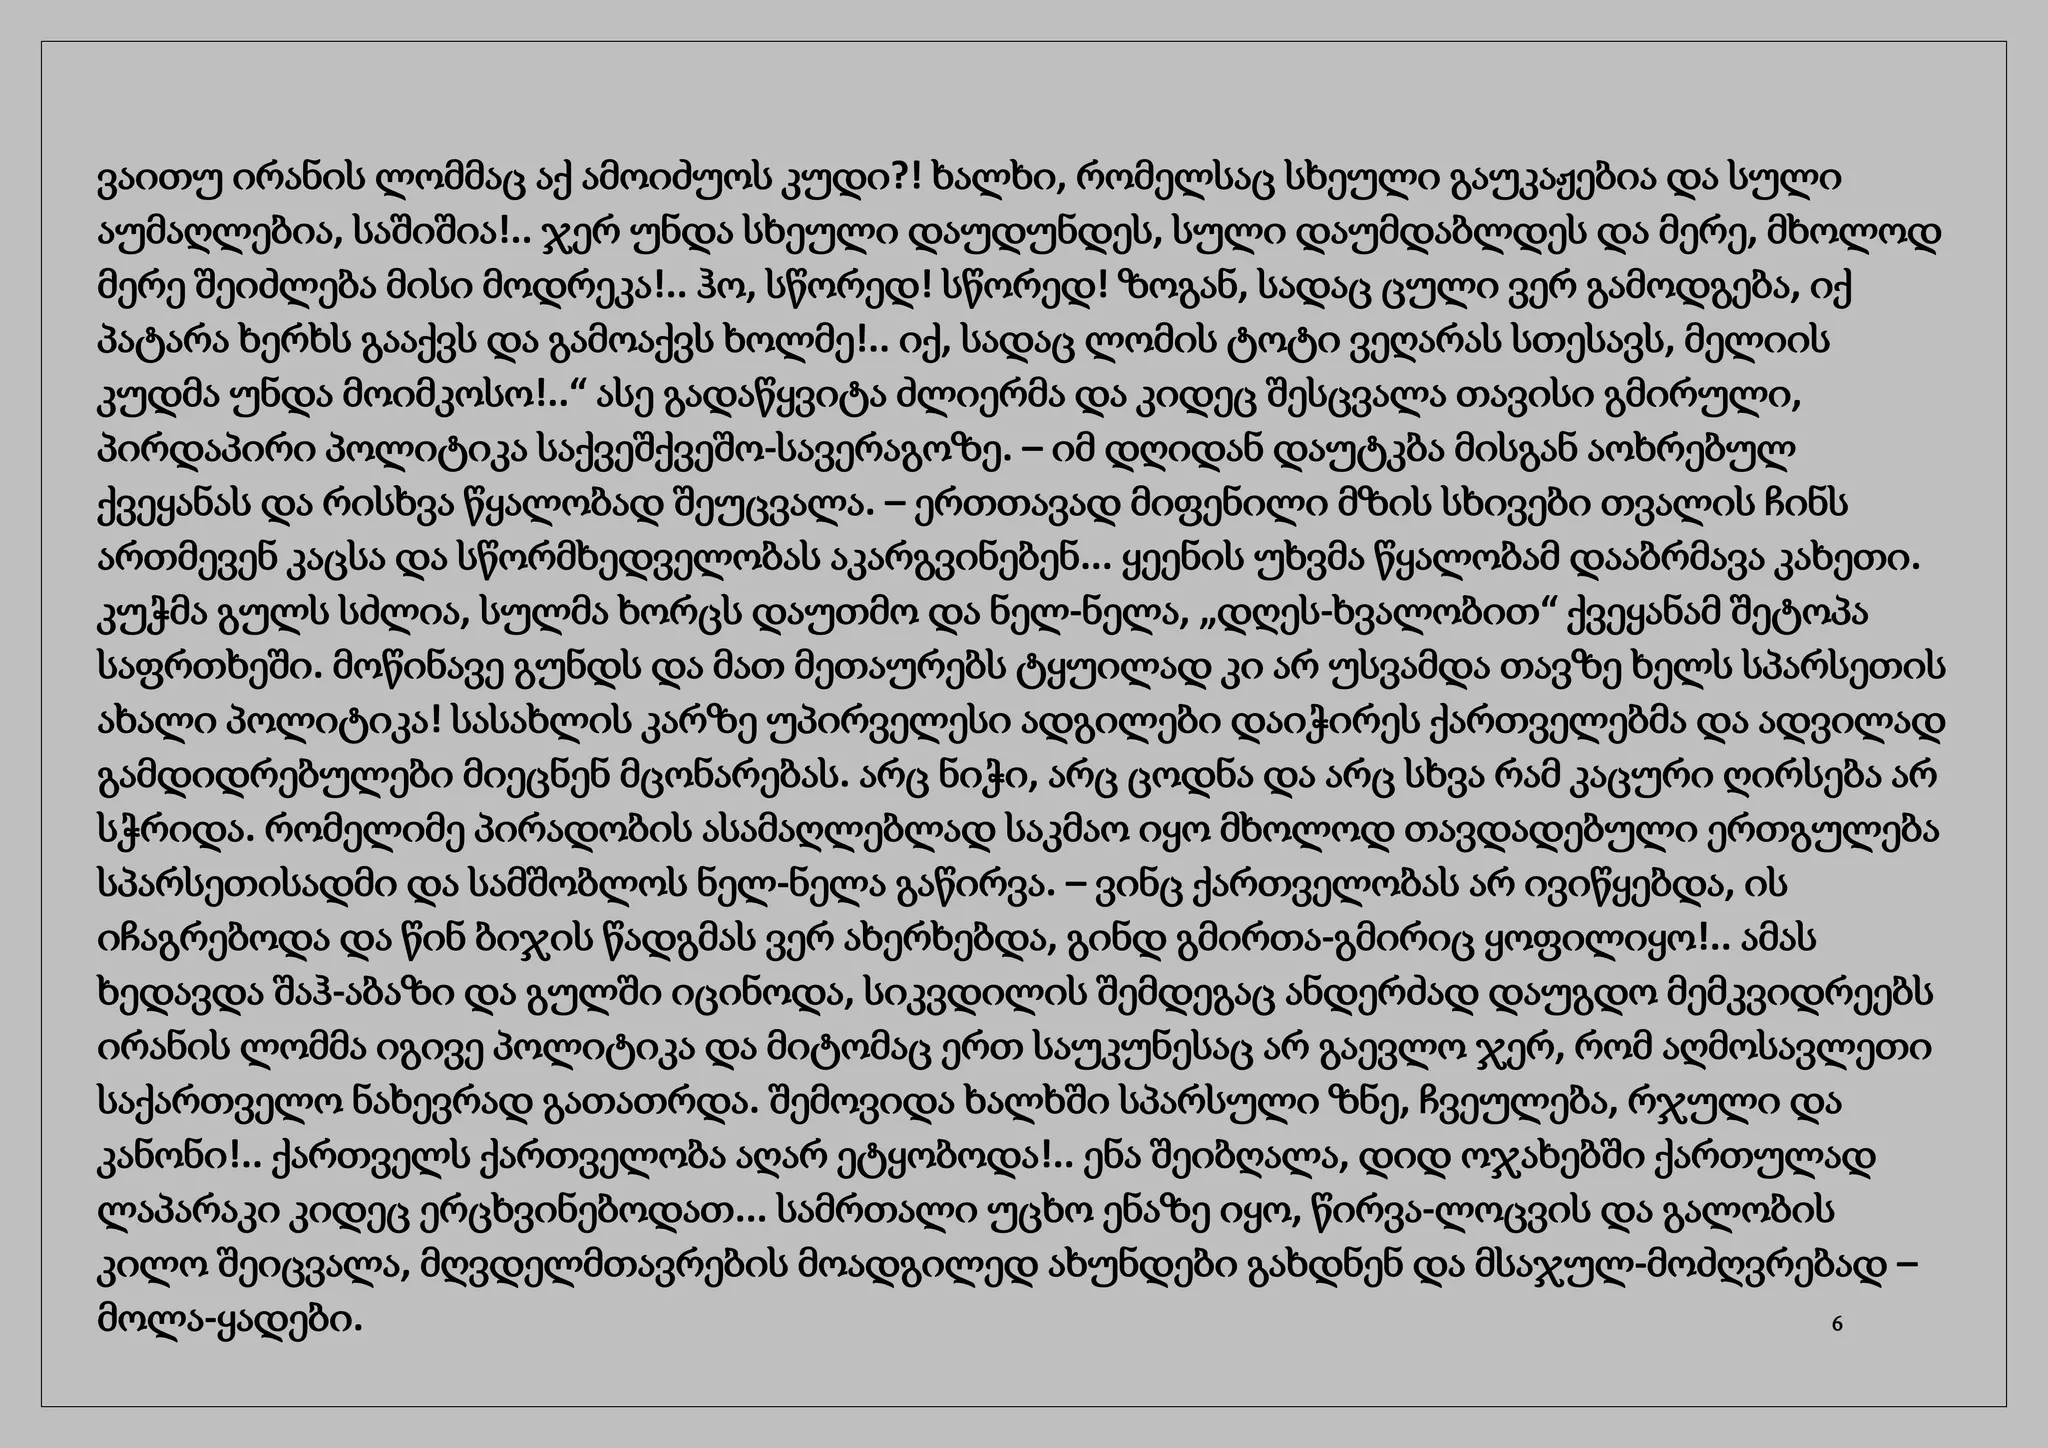 ვაითუ ირანის ლომმაც აქ ამოიძუოს კუდი?! ხალხი, რომელსაც სხეული გაუკაჟებია და სული
აუმაღლებია, საშიშია!.. ჯერ უნდა სხეული დაუდუნდეს, სული დაუმდაბლდეს და მერე, მხოლოდ
მერე შეიძლება მისი მოდრეკა!.. ჰო, სწორედ! სწორედ! ზოგან, სადაც ცული ვერ გამოდგება, იქ
პატარა ხერხს გააქვს და გამოაქვს ხოლმე!.. იქ, სადაც ლომის ტოტი ვეღარას სთესავს, მელიის
კუდმა უნდა მოიმკოსო!..“ ასე გადაწყვიტა ძლიერმა და კიდეც შესცვალა თავისი გმირული,
პირდაპირი პოლიტიკა საქვეშქვეშო-სავერაგოზე. – იმ დღიდან დაუტკბა მისგან აოხრებულ
ქვეყანას და რისხვა წყალობად შეუცვალა. – ერთთავად მიფენილი მზის სხივები თვალის ჩინს
ართმევენ კაცსა და სწორმხედველობას აკარგვინებენ... ყეენის უხვმა წყალობამ დააბრმავა კახეთი.
კუჭმა გულს სძლია, სულმა ხორცს დაუთმო და ნელ-ნელა, „დღეს-ხვალობით“ ქვეყანამ შეტოპა
საფრთხეში. მოწინავე გუნდს და მათ მეთაურებს ტყუილად კი არ უსვამდა თავზე ხელს სპარსეთის
ახალი პოლიტიკა! სასახლის კარზე უპირველესი ადგილები დაიჭირეს ქართველებმა და ადვილად
გამდიდრებულები მიეცნენ მცონარებას. არც ნიჭი, არც ცოდნა და არც სხვა რამ კაცური ღირსება არ
სჭრიდა. რომელიმე პირადობის ასამაღლებლად საკმაო იყო მხოლოდ თავდადებული ერთგულება
სპარსეთისადმი და სამშობლოს ნელ-ნელა გაწირვა. – ვინც ქართველობას არ ივიწყებდა, ის
იჩაგრებოდა და წინ ბიჯის წადგმას ვერ ახერხებდა, გინდ გმირთა-გმირიც ყოფილიყო!.. ამას
ხედავდა შაჰ-აბაზი და გულში იცინოდა, სიკვდილის შემდეგაც ანდერძად დაუგდო მემკვიდრეებს
ირანის ლომმა იგივე პოლიტიკა და მიტომაც ერთ საუკუნესაც არ გაევლო ჯერ, რომ აღმოსავლეთი
საქართველო ნახევრად გათათრდა. შემოვიდა ხალხში სპარსული ზნე, ჩვეულება, რჯული და
კანონი!.. ქართველს ქართველობა აღარ ეტყობოდა!.. ენა შეიბღალა, დიდ ოჯახებში ქართულად
ლაპარაკი კიდეც ერცხვინებოდათ... სამრთალი უცხო ენაზე იყო, წირვა-ლოცვის და გალობის
კილო შეიცვალა, მღვდელმთავრების მოადგილედ ახუნდები გახდნენ და მსაჯულ-მოძღვრებად –
მოლა-ყადები.
6